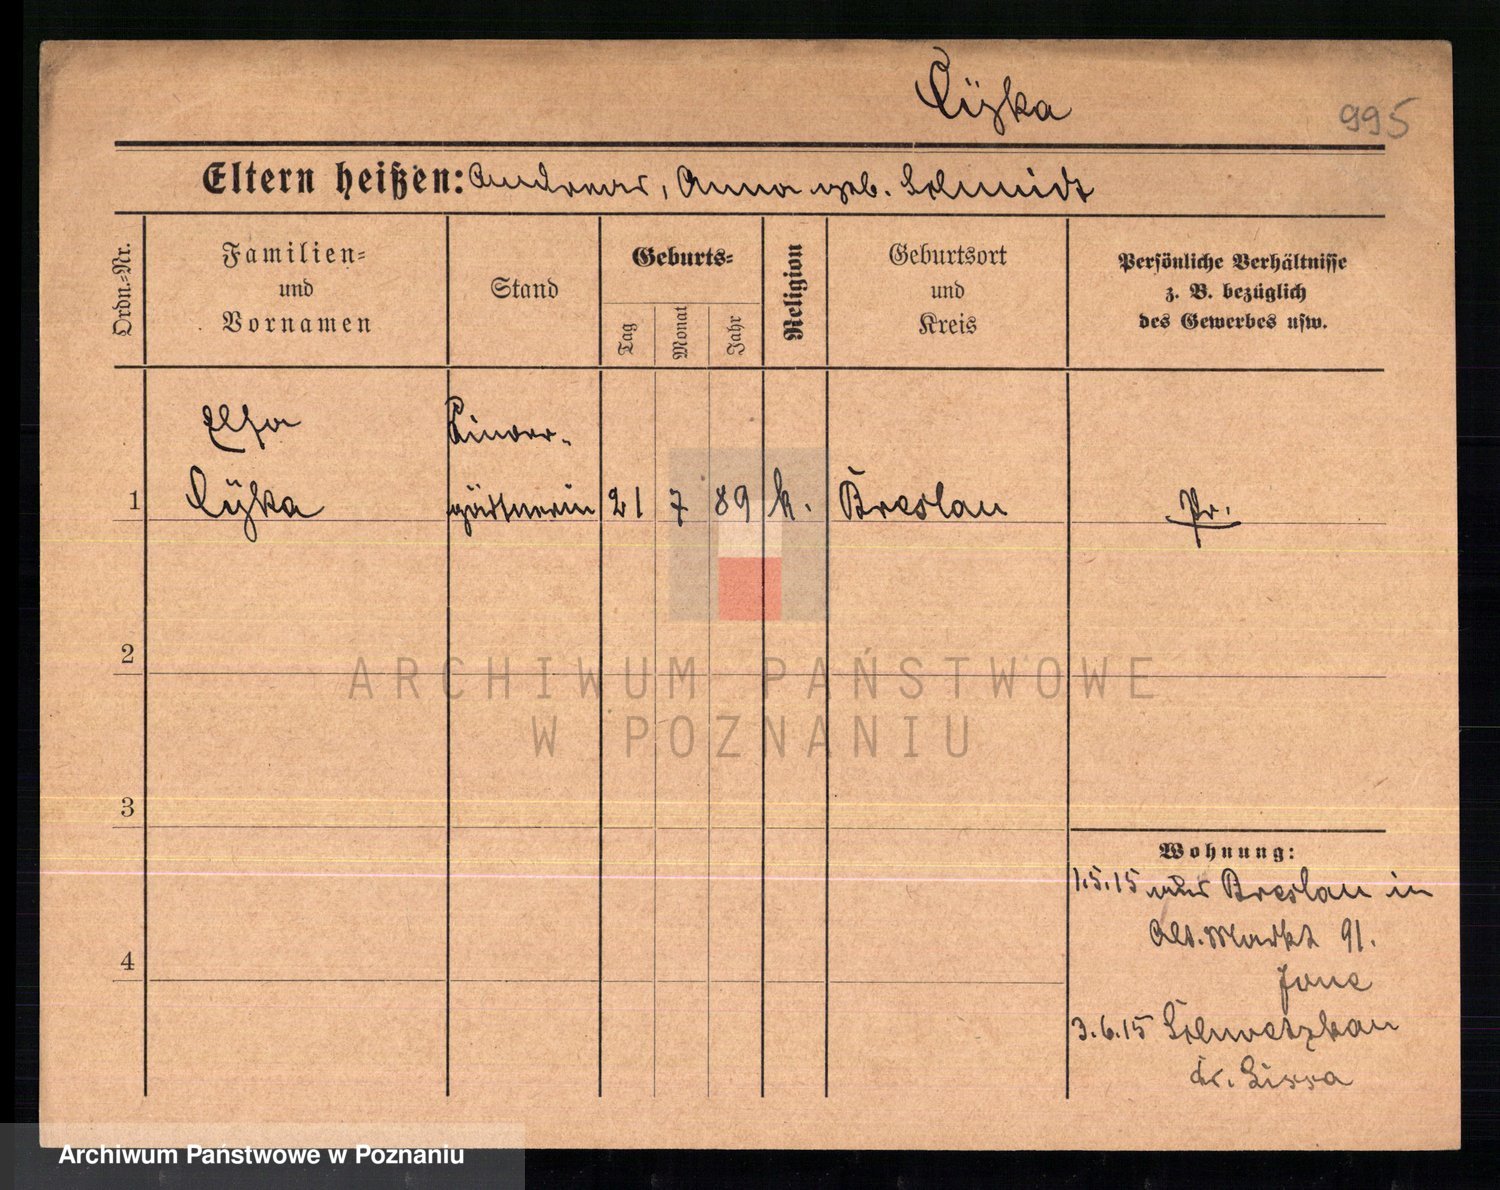 Cÿzka
995
Eltern heißen: Andreas, Anna geb. Schmidt
Ordn.=Nr.
Familien=
und
Vornamen
Stand
Geburts=
Tag
Monat
Jahr
Religion
Geburtsort
und
Kreis
Persönliche Verhältnisse
z. B. bezüglich
des Gewerbes usw.
Elsa
Kinder-
1
Cÿzka
gärtnerin
21
7
89
k.
Breslau
Pr.
2
ARCHIWUM PAŃSTWOWE
W POZNANIU
3
Wohnung:
1.5.15 aus Breslau in
Alt. Markt 91.
4
3.6.15 Schwetzkau
Kr. Lissa
Archiwum Państwowe w Poznaniu